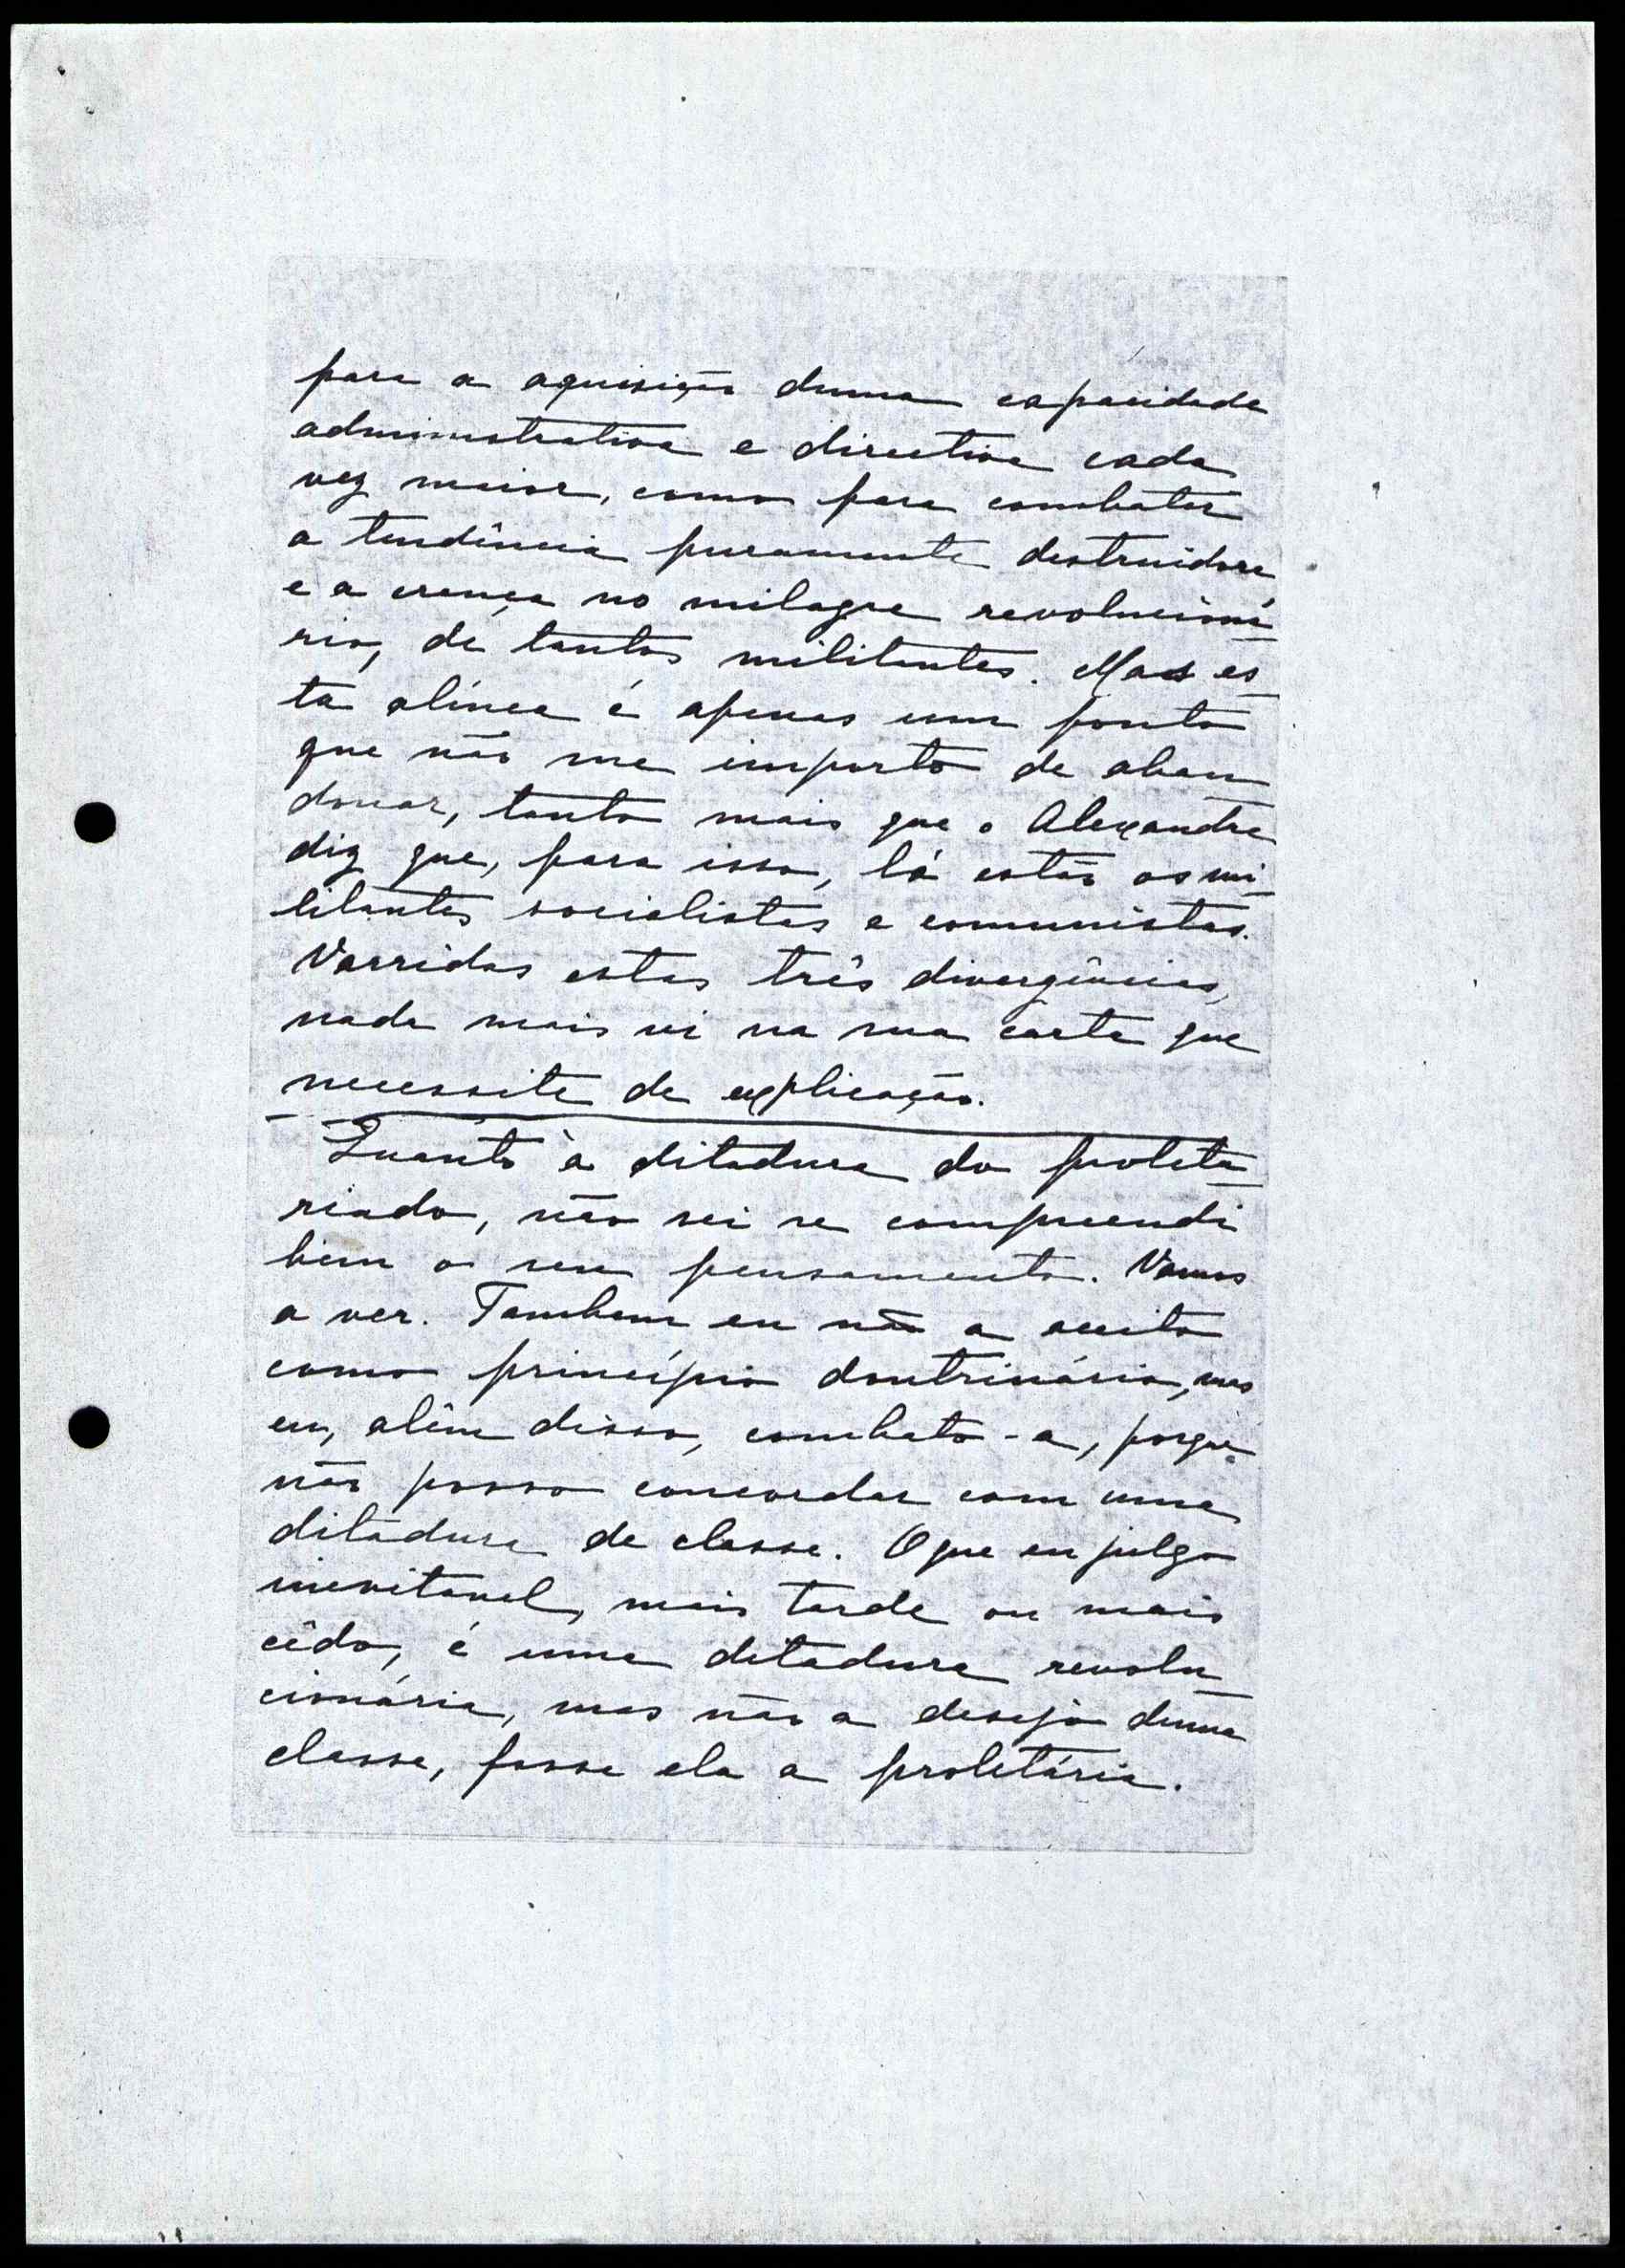 para a aquisição duma capacidade
administrativa e directiva cada
vez maior, como para combater
a tendência puramente destruidora
e a crença no milagre revolucioná-
rio, de tantos militantes. Mas es-
ta alínea é apenas um ponto
que não me importo de aban-
donar, tanto mais que o Alexandre
diz que, para isso, lá estão os mi-
litantes socialistas e comunistas.
Varridas estas três divergências,
nada mais vi na sua carta que
necessite de explicação.
Quanto à ditadura do proleta-
riado, não sei se compreendi
bem o seu pensamento. Vamos
a ver. Tambem eu não a aceito
como princípio doutrinário, mas
eu, além disso, combato-a, porque
não posso concordar com uma
ditadura de classe. O que eu julgo
inevitavel, mais tarde ou mais
cêdo, é uma ditadura revolu-
cionária, mas não a desejo duma
classe, fosse ela a proletária.